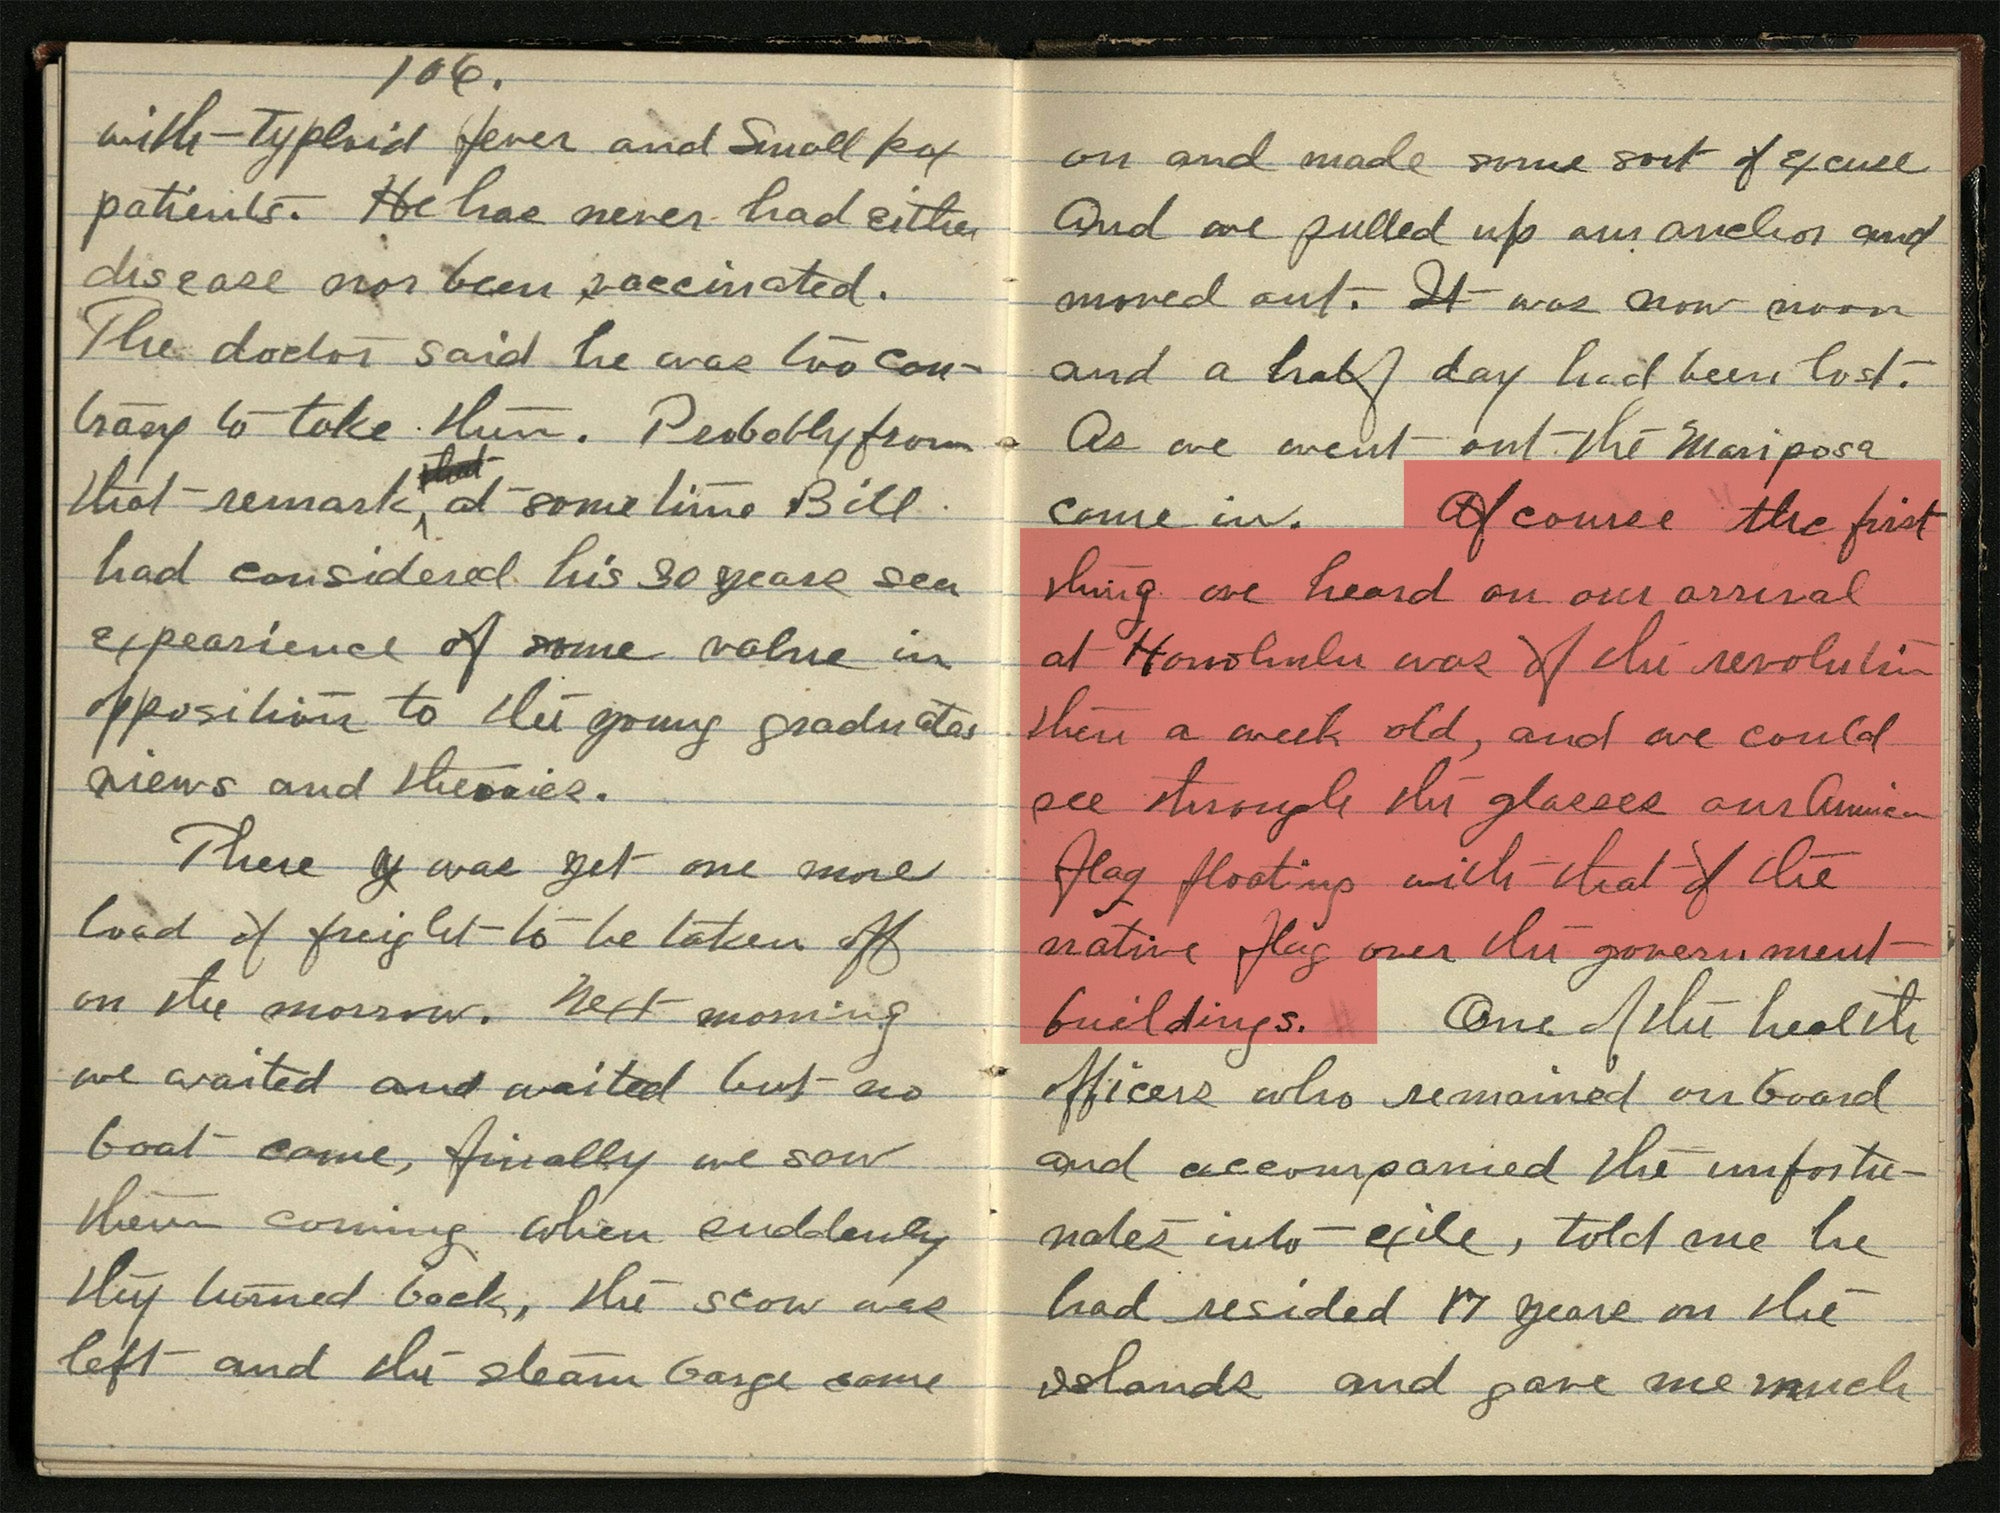 106.
with typhoid fever and Small pox
patients. He has never had either
disease nor been vaccinated.
The doctor said he was too con-
trary to take them. Probably from
that remark, that at some time Bill
had considered his 30 years sea
expearience of some value in
opposition to the young graduates
views and theories.
There y was yet one more
load of freight to be taken off
on the morrow. Next morning
we waited and waited but no
boat came, finally we saw
them coming when suddenly
they turned back, the scow was
left and the steam barge came
on and made some sort of excuse
And we pulled up our anchor and
moved out. It was now noon
and a half day had been lost.
As we went out the Mariposa
came in. Of course the first
thing we heard on our arrival
at Honolulu was of the revolution
then a week old, and we could
see through the glasses our American
flag floating with that of the
native flag over the government
buildings. One of the health
officers who remained on board
and accompanied the unfortu-
nates into exile, told me he
had resided 17 years on the
islands and gave me much